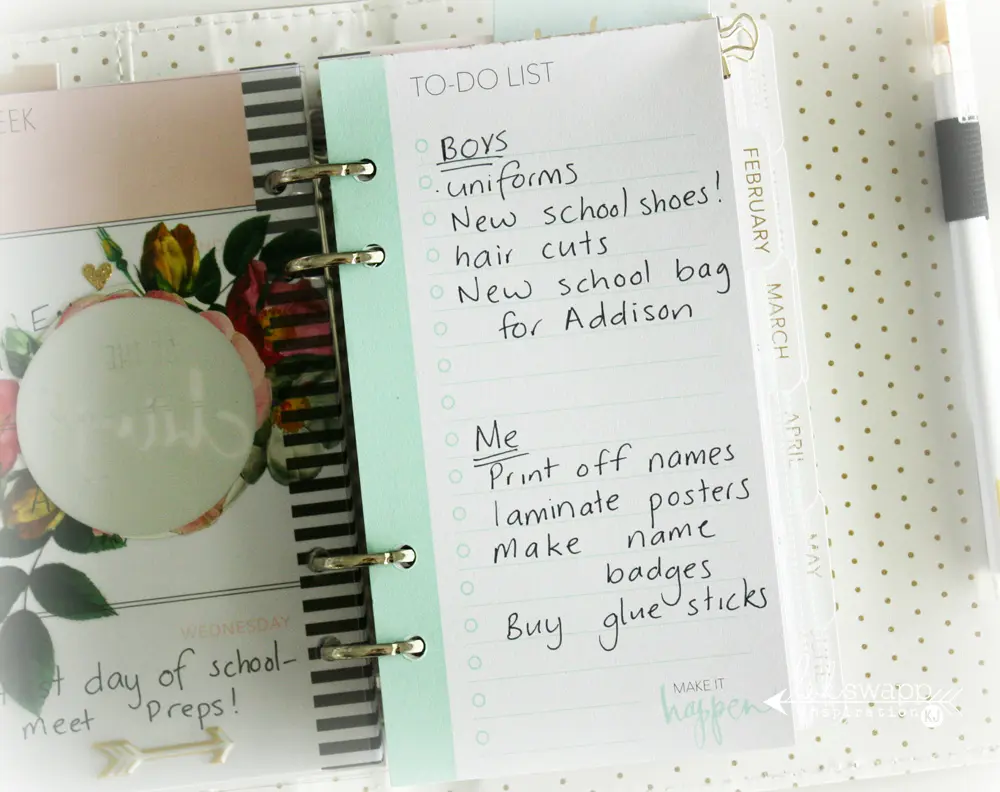 EEK
WEDNESDAY
day of school-
meet Preps!
TO-DO LIST
BOYS
. uniforms
New school shoes!
hair cuts
New school bag
for Addison
Me
Print off names
laminate posters
make name
badges
Buy glue sticks
MAKE IT
happen
FEBRUARY
MARCH
APRIL
MAY
swapp
inspiration KJ